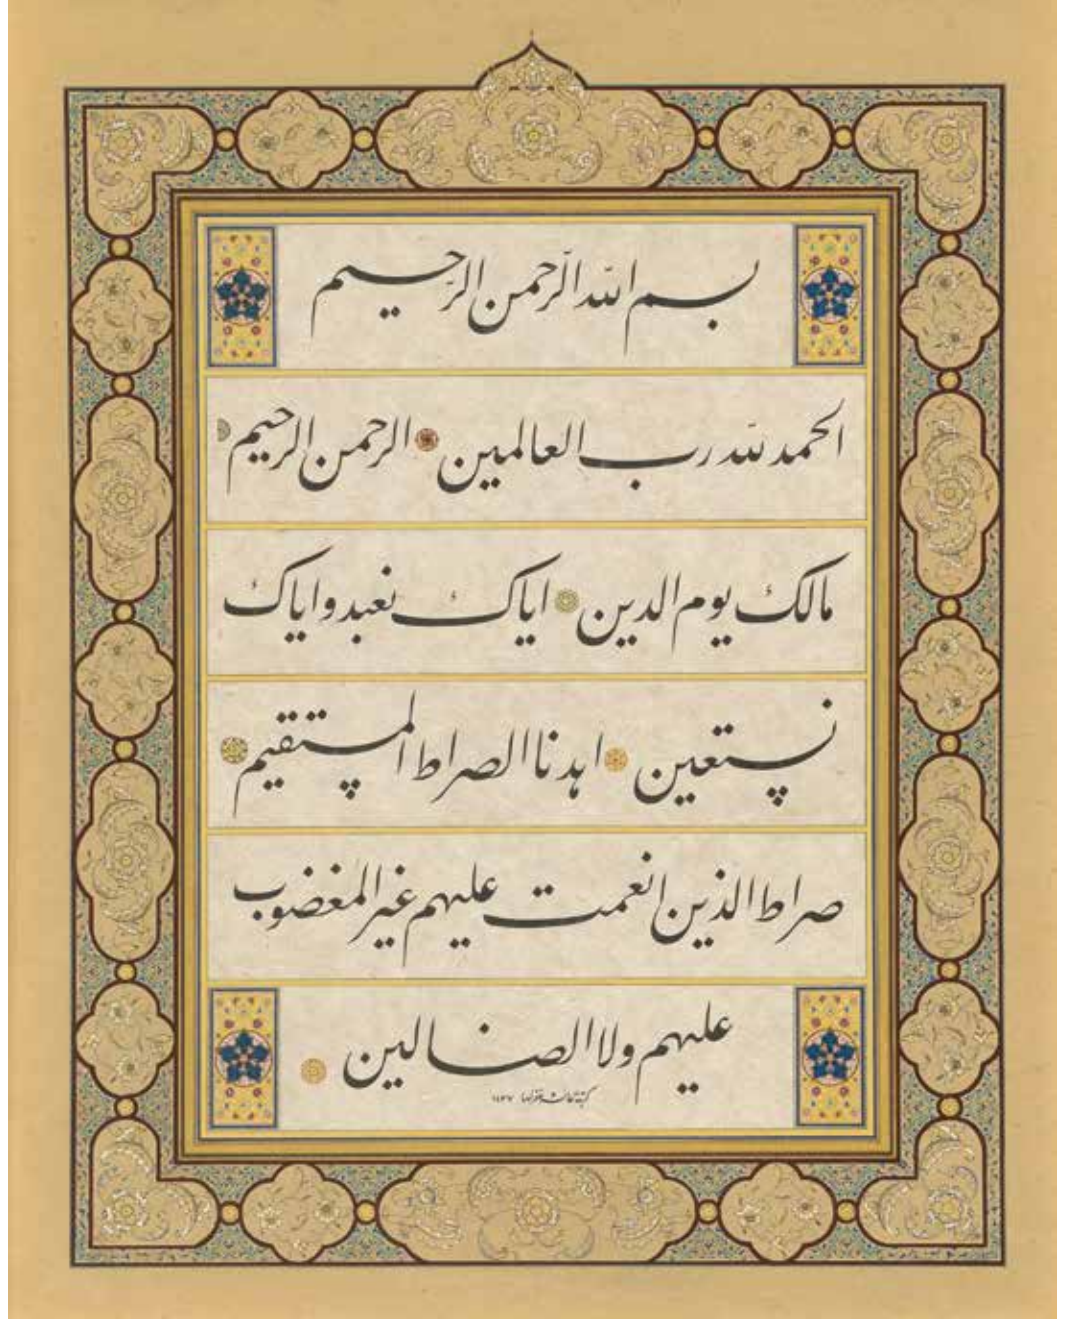 بسم الله الرّحمن الرّحيم
الحمد لله رب العالمين الرحمن الرحيم
مالك يوم الدين اياك نعبد واياك
نستعين اهدنا الصراط المستقيم
صراط الذين انعمت عليهم غير المغضوب
عليهم ولا الضالين